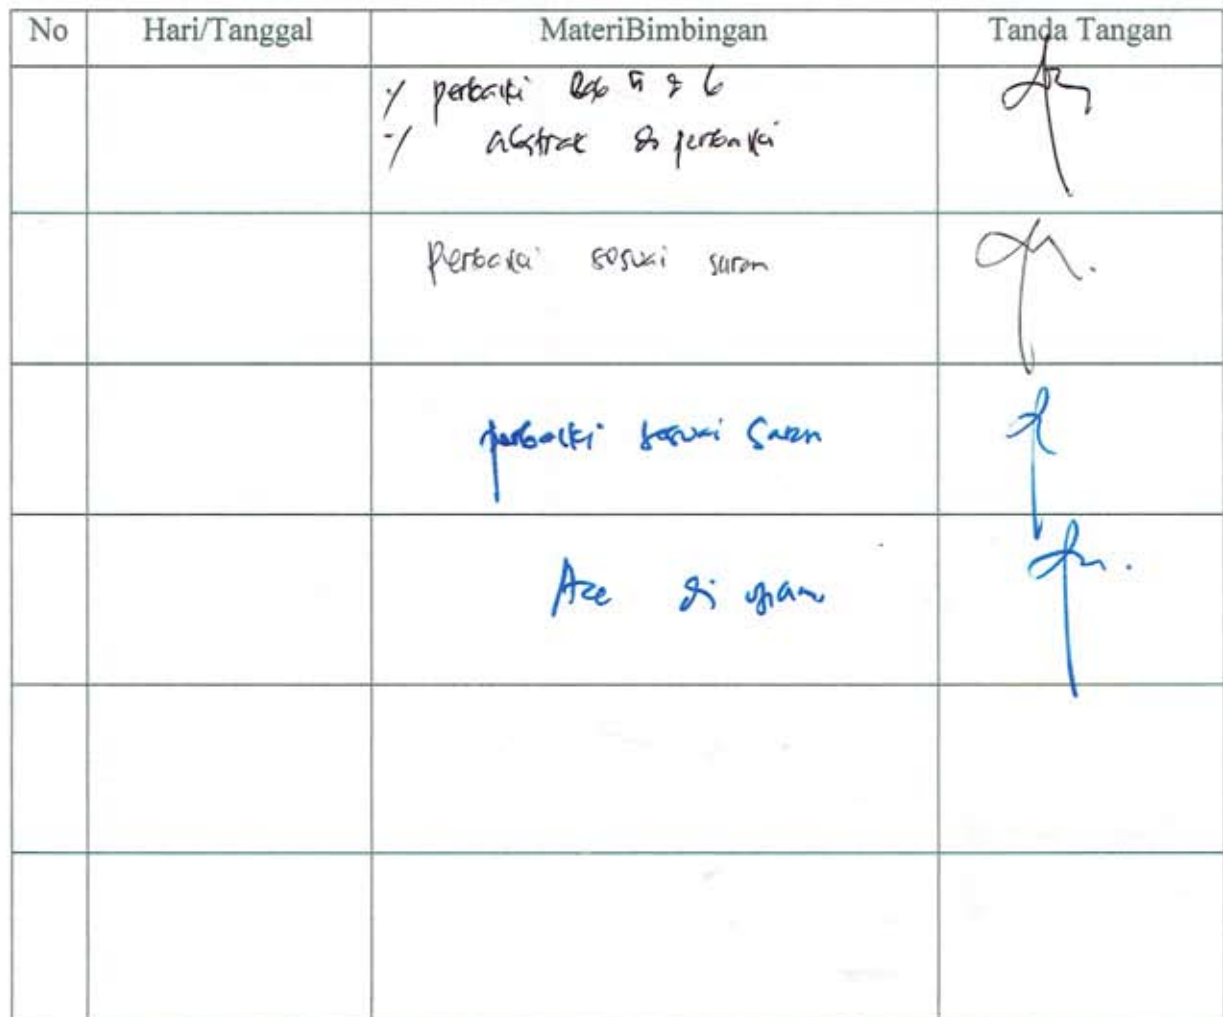 No Hari/Tanggal MateriBimbingan Tanda Tangan
-/ perbaiki Bab 5 & 6
-/ abstrak di perbaiki
Perbaiki sesuai saran
perbaiki sesuai saran
Acc di ujian